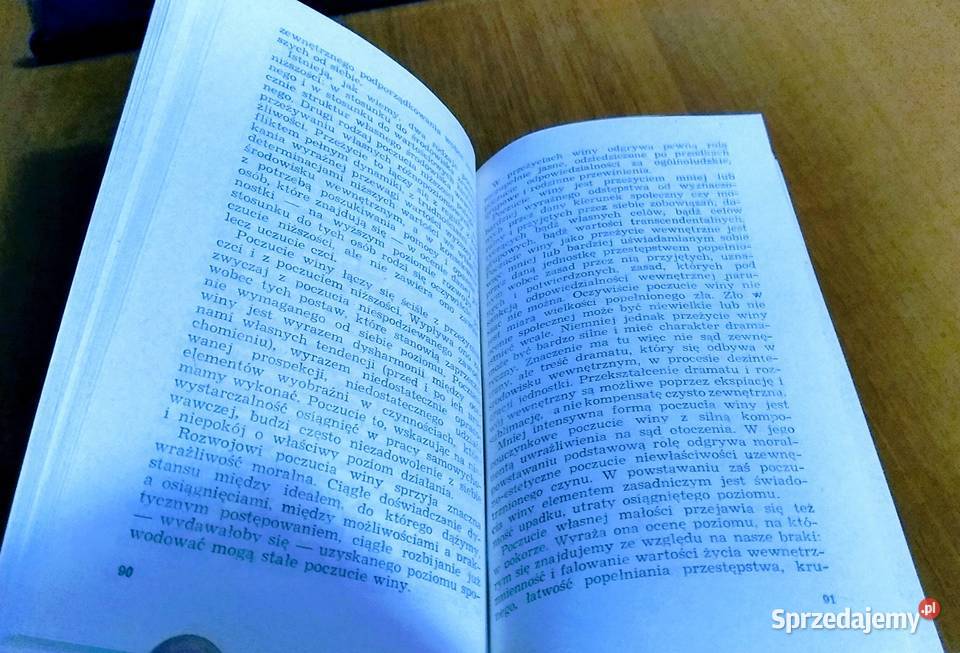 zewnętrznego podporządkowania
szych od siebie.
Istnieją, jak wiemy, dwa rodzaje
niższości w stosunku do środowiska
nego i w stosunku do wartości
cznie struktur własnego środowiska
nego. Drugi rodzaj poczucia
przeżywaniu własnych
żliwości. Przeżycie to łączy się z
fliktem pełnym dynamiki, z
kania wyraźnej przewagi nad
determinacjami niższych warstw
środowisku wewnętrznym, a w
z potrzebą poszukiwania pomocy i oparcia
osób, które znajdują się — w ocenie
nostki — na wyższym poziomie rozwoju.
stosunku do tych osób rodzi się szacunek,
lecz uczucie niższości.
Poczucie winy łączy się ściśle z przeżyciem
czci i z poczuciem niższości. Wypływa
zwyczaj z poczucia niespodziewanego
wobec tych postaw, które stanowią
nie wymaganego od siebie poziomu. Poczucie
winy jest wyrazem dysharmonii między
nami własnych tendencji (przed i po ich
chomieniu), wyrazem niedostatecznie
wanej prospekcji, niedostatecznego udziału
elementów wyobraźni w czynnościach, które
mamy wykonać. Poczucie to, wskazując na nie-
wystarczalność osiągnięć w pracy samowycho-
wawczej, budzi często niezadowolenie z siebie
i niepokój o właściwy poziom działania.
Rozwojowi poczucia winy sprzyja znaczna
wrażliwość moralna. Ciągłe doświadczanie dy-
stansu między ideałem, do którego dążymy,
a osiągnięciami, między możliwościami a prak-
tycznym postępowaniem, ciągłe rozbijanie już
— wydawałoby się — uzyskanego poziomu spo-
wodować mogą stałe poczucie winy.
90
W przeżyciach winy odgrywa pewną rolę
jasne, odziedziczone po przodkach
odpowiedzialności za ogólnoludzkie,
i rodzinne przewinienia.
Poczucie winy jest przeżyciem mniej lub
bardziej wyraźnego odstępstwa od wyznaczo-
przez dany kierunek społeczny czy mo-
przyjętych przez siebie zobowiązań, da-
bądź własnych celów, bądź celów
bądź wartości transcendentalnych.
Poczucie winy jako przeżycie wewnętrzne jest
mniej lub bardziej uświadamianym sobie
przez daną jednostkę przestępstwem popełnio-
wobec zasad przez nią przyjętych, uzna-
i potwierdzonych, zasad, których pod
odpowiedzialności wewnętrznej naru-
nie można. Oczywiście poczucie winy nie
jest miarą wielkości popełnionego zła. Zło w
społecznej może być niewielkie lub nie
wcale. Niemniej jednak przeżycie winy
może być bardzo silne i mieć charakter drama-
tyczny. Znaczenie ma tu więc nie sąd zewnę-
trzny, ale treść dramatu, który się odbywa w
środowisku wewnętrznym, w procesie dezinte-
gracji jednostki. Przekształcenie dramatu i roz-
wój wewnętrzny są możliwe poprzez ekspiację i
sublimację, a nie kompensatę czysto zewnętrzną.
Mniej intensywną formą poczucia winy jest
pouczynkowe poczucie winy z silną kompo-
nentą uwrażliwienia na sąd otoczenia. W jego
powstawaniu podstawową rolę odgrywa moral-
no-estetyczne poczucie niewłaściwości uzewnę-
trznionego czynu. W powstawaniu zaś poczu-
cia winy elementem zasadniczym jest świado-
mość upadku, utraty osiągniętego poziomu.
Poczucie własnej małości przejawia się też
w pokorze. Wyraża ona ocenę poziomu, na któ-
rym się znajdujemy ze względu na nasze braki:
zmienność i falowanie wartości życia wewnętrz-
nego, łatwość popełniania przestępstwa, kru-
91
Sprzedajemy.pl